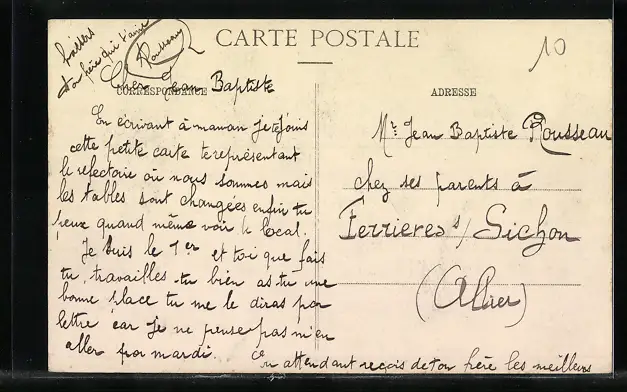 CARTE POSTALE
10
CORRESPONDANCE
ADRESSE
Cher Jean Baptiste
En écrivant à maman je te joins
cette petite carte te représentant
le refectoire où nous sommes mais
les tables sont changées enfin tu
peux quand même voir le local.
Je suis le 1er et toi que fais
tu, travailles-tu bien as-tu une
bonne place tu me le diras par
lettre car je ne pense pas m'en
aller par mardi.
En attendant reçois de ton frère les meilleurs
baisers
ton frère qui t'aime
Rousseau
Mr Jean Baptiste Rousseau
chez ses parents à
Ferrieres s/ Sichon
(Allier)